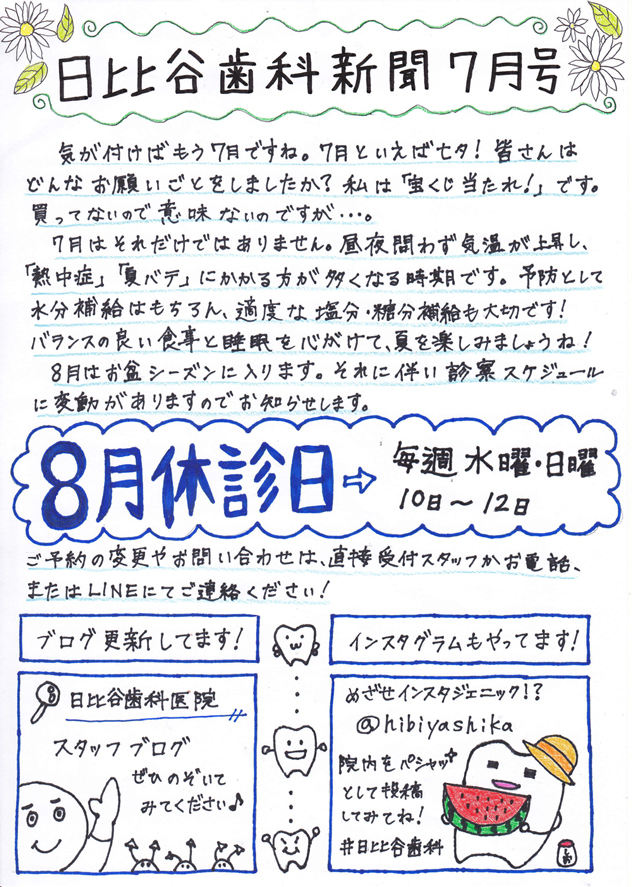 日比谷歯科新聞 7月号
気が付けばもう7月ですね。7月といえば七夕！皆さんは
どんなお願いごとをしましたか？私は「宝くじ当たれ！」です。
買ってないので意味ないのですが・・・。
7月はそれだけではありません。昼夜問わず気温が上昇し、
「熱中症」「夏バテ」にかかる方が多くなる時期です。予防として
水分補給はもちろん、適度な塩分・糖分補給も大切です！
バランスの良い食事と睡眠を心がけて、夏を楽しみましょうね！
8月はお盆シーズンに入ります。それに伴い診察スケジュール
に変動がありますのでお知らせします。
8月休診日⇨
毎週 水曜・日曜
10日〜12日
ご予約の変更やお問い合わせは、直接受付スタッフかお電話、
またはLINEにてご連絡ください！
ブログ更新してます！
日比谷歯科医院
スタッフブログ
ぜひのぞいて
みてください♪
インスタグラムもやってます！
めざせインスタジェニック！？
@hibiyashika
院内をパシャッ
として投稿
してみてね！
#日比谷歯科
しお